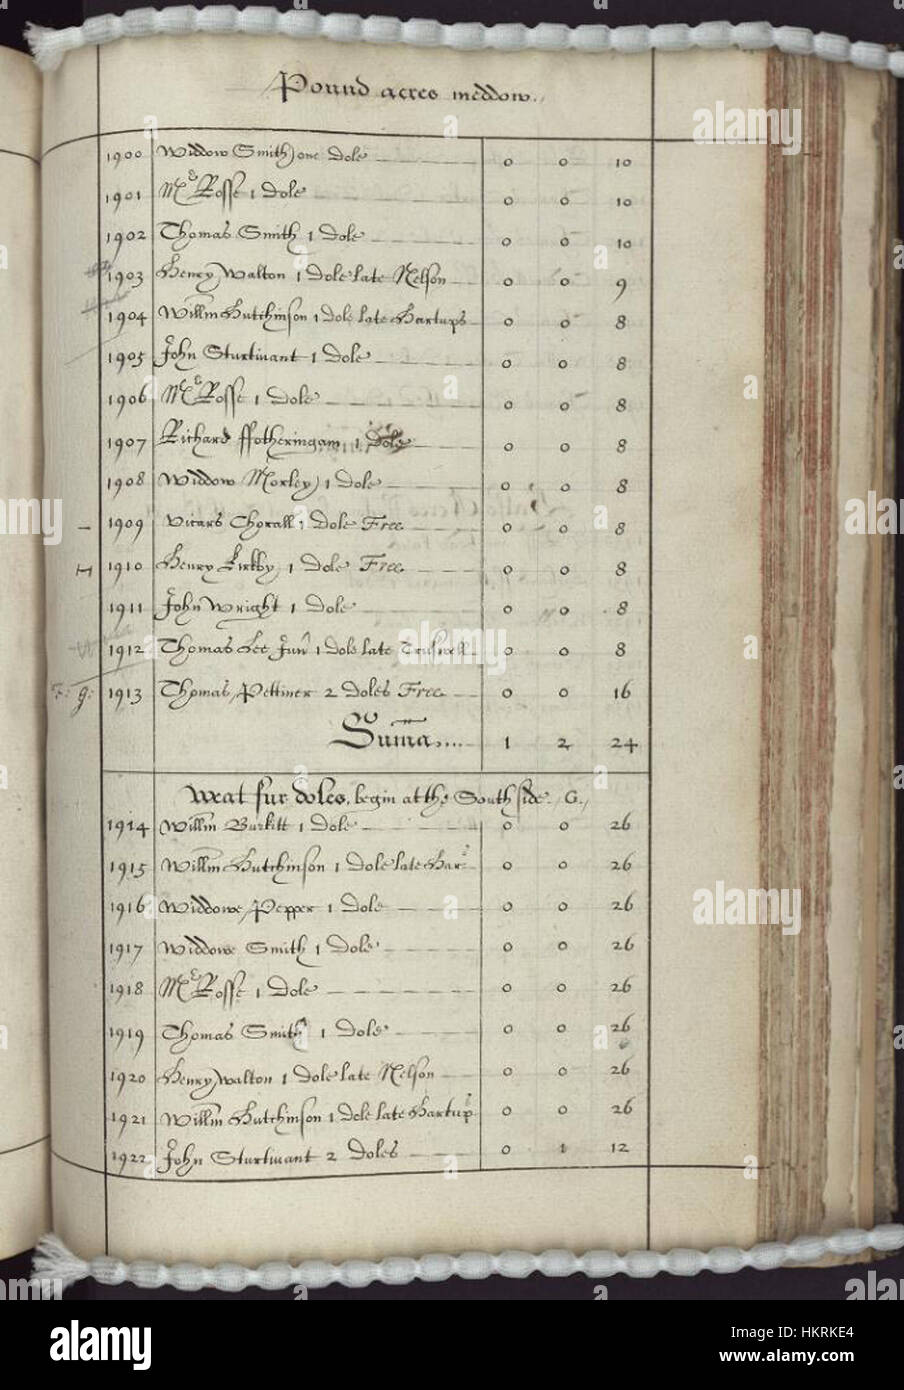 Pound acres meddow.
1900 Widdow Smith one dole 0 0 10
1901 Mr Rosse 1 dole 0 0 10
1902 Thomas Smith 1 dole 0 0 10
1903 Henry Walton 1 dole late Nelson 0 0 9
1904 Willm Hutchinson 1 dole late Hartups 0 0 8
1905 John Sturtivant 1 dole 0 0 8
1906 Mr Rosse 1 dole 0 0 8
1907 Richard ffotheringam 1 dole 0 0 8
1908 Widdow Morley 1 dole 0 0 8
1909 Vicars Chorall 1 dole Free 0 0 8
I 1910 Henry Kirkby 1 dole Free 0 0 8
1911 John Wright 1 dole 0 0 8
1912 Thomas Lee Junr 1 dole late 0 0 8
F: g: 1913 Thomas Pettiner 2 doles Free 0 0 16
Suma.... 1 2 24
Weat fur doles, begin at the South side. G.
1914 Willm Burkitt 1 dole 0 0 26
1915 Willm Hutchinson 1 dole late Har: 0 0 26
1916 Widdowe Pepper 1 dole 0 0 26
1917 Widdowe Smith 1 dole 0 0 26
1918 Mr Rosse 1 dole 0 0 26
1919 Thomas Smith 1 dole 0 0 26
1920 Henry Walton 1 dole late Nelson 0 0 26
1921 Willm Hutchinson 1 dole late Hartups 0 0 26
1922 John Sturtivant 2 doles 0 1 12
alamy
Image ID: HKRKE4
www.alamy.com